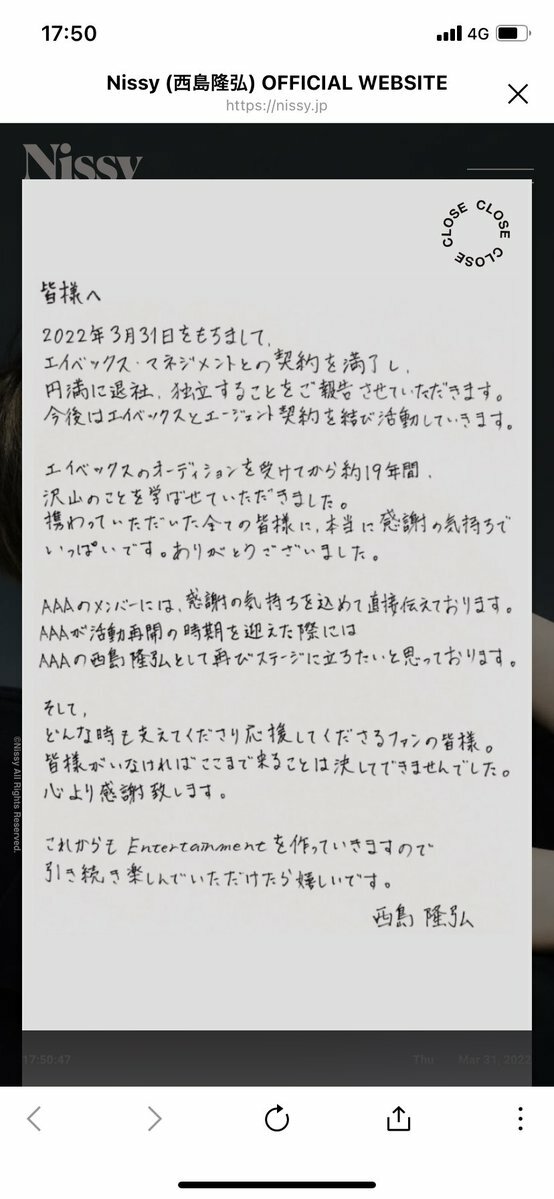 17:50
4G
Nissy (西島隆弘) OFFICIAL WEBSITE
https://nissy.jp
Nissy
CLOSE CLOSE CLOSE CLOSE
皆様へ
2022年3月31日をもちまして、
エイベックス・マネジメントとの契約を満了し、
円満に退社、独立することをご報告させていただきます。
今後はエイベックスとエージェント契約を結び活動していきます。
エイベックスのオーディションを受けてから約19年間、
沢山のことを学ばせていただきました。
携わっていただいた全ての皆様に、本当に感謝の気持ちで
いっぱいです。ありがとうございました。
AAAのメンバーには、感謝の気持ちを込めて直接伝えております。
AAAが活動再開の時期を迎えた際には
AAAの西島隆弘として再びステージに立ちたいと思っております。
そして、
どんな時も支えてくださり応援してくださるファンの皆様。
皆様がいなければここまで来ることは決してできませんでした。
心より感謝致します。
これからも Entertainmentを作っていきますので
引き続き楽しんでいただけたら嬉しいです。
西島 隆弘
©Nissy All Rights Reserved.
17:50:47
Thu Mar 31, 2022